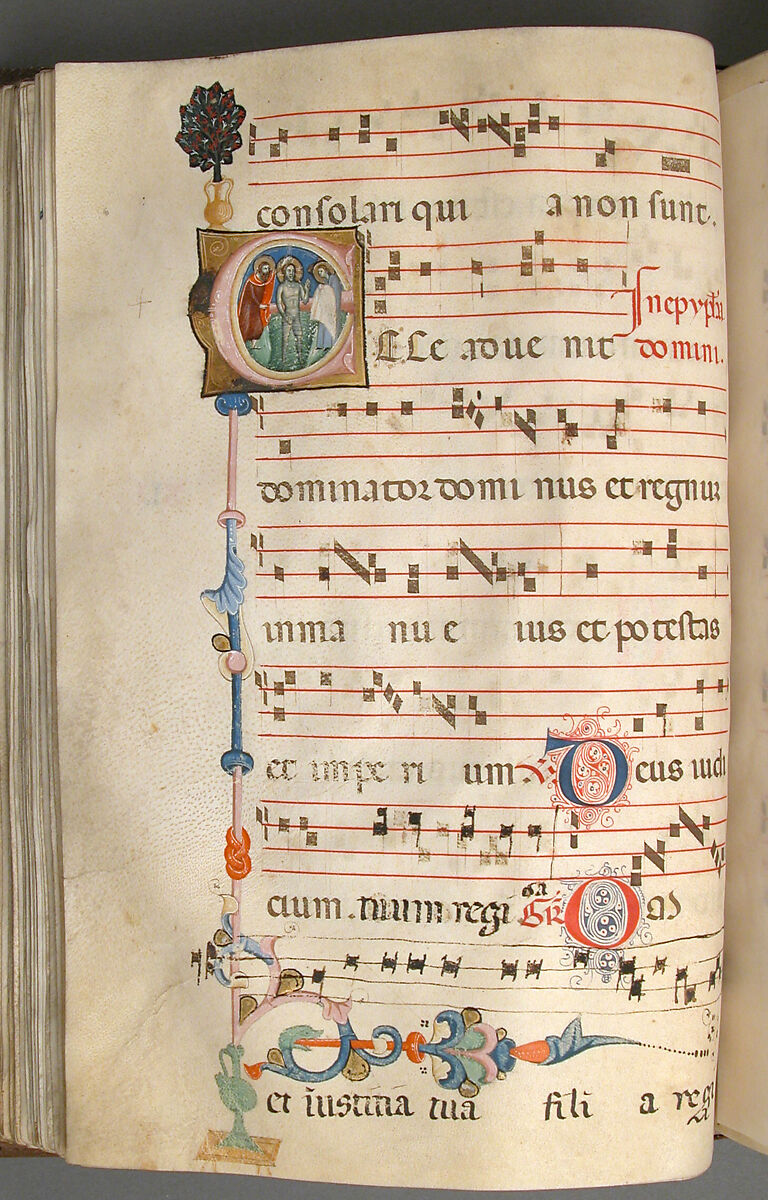 consolari qui a non sunt.
ECCe adue nit In epyphia domini.
dominator domi nus et regnum
in ma nu e ius et potestas
et impe ri um. Deus iudi
cium .tuum regi da Gr̄ Om
et iustitia tua fili a regi